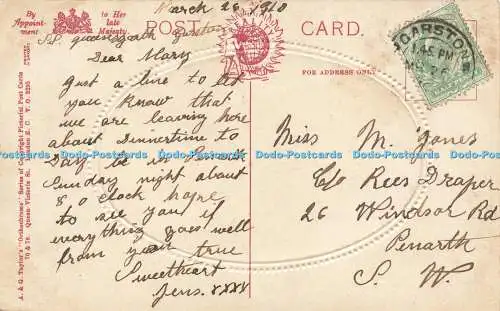 March 26 1910
By Appoint-ment
to Her Late Majesty
POST CARD.
FOR ADDRESS ONLY.
GARSTON
1.45 PM
S.S.
Dear Mary
Just a line to let
you know that
we are leaving here
about Dinnertime to
Day be in Penarth
Sunday night about
8, o clock hope
to see you if
everything goes well
from your true
Sweetheart
Jens. xxxx
Miss M. Jones
C/o Rees Draper
26 Windsor Rd
Penarth
S. W.
A. & G. Taylor's "Orthochrome" Series of Copyright Pictorial Post Cards
70 & 78 Queen Victoria St. London E.C.
Dodo-Postcards Dodo-Postcards Dodo-Postcards Dodo-Postcards Dodo-Postcards Dodo-Postcards